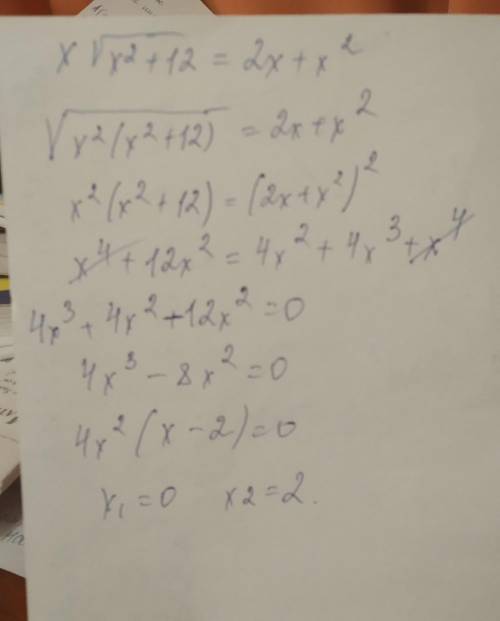 x √x² + 12 = 2x + x²
√x²(x² + 12) = 2x + x²
x²(x² + 12) = (2x + x²)²
x⁴ + 12x² = 4x² + 4x³ + x⁴
4x³ + 4x² + 12x² = 0
4x³ − 8x² = 0
4x² (x − 2) = 0
x₁ = 0 x2 = 2.